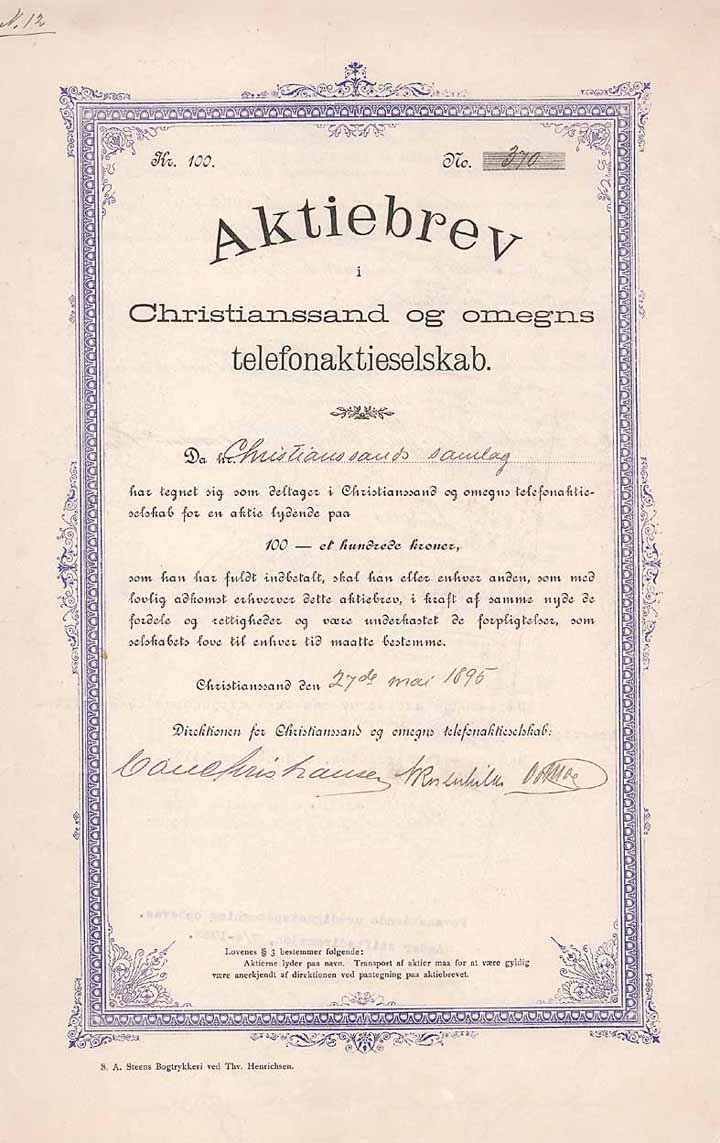 N. 12
Kr. 100. No. 370
Aktiebrev
i
Christianssand og omegns
telefonaktieselskab.
Da hr. Christianssands samlag
har tegnet sig som deltager i Christianssand og omegns telefonaktie-
selskab for en aktie lydende paa
100 — et hundrede kroner,
som han har fuldt indbetalt, skal han eller enhver anden, som med
lovlig adkomst erhverver dette aktiebrev, i kraft af samme nyde de
fordele og rettigheder og være underkastet de forpligtelser, som
selskabets love til enhver tid maatte bestemme.
Christianssand den 27de mai 1895
Direktionen for Christianssand og omegns telefonaktieselskab:
Christiansen
Lovenes § 3 bestemmer følgende:
Aktierne lyder paa navn. Transport af aktier maa for at være gyldig
være anerkjendt af direktionen ved pategning paa aktiebrevet.
S. A. Steens Bogtrykkeri ved Thv. Henrichsen.